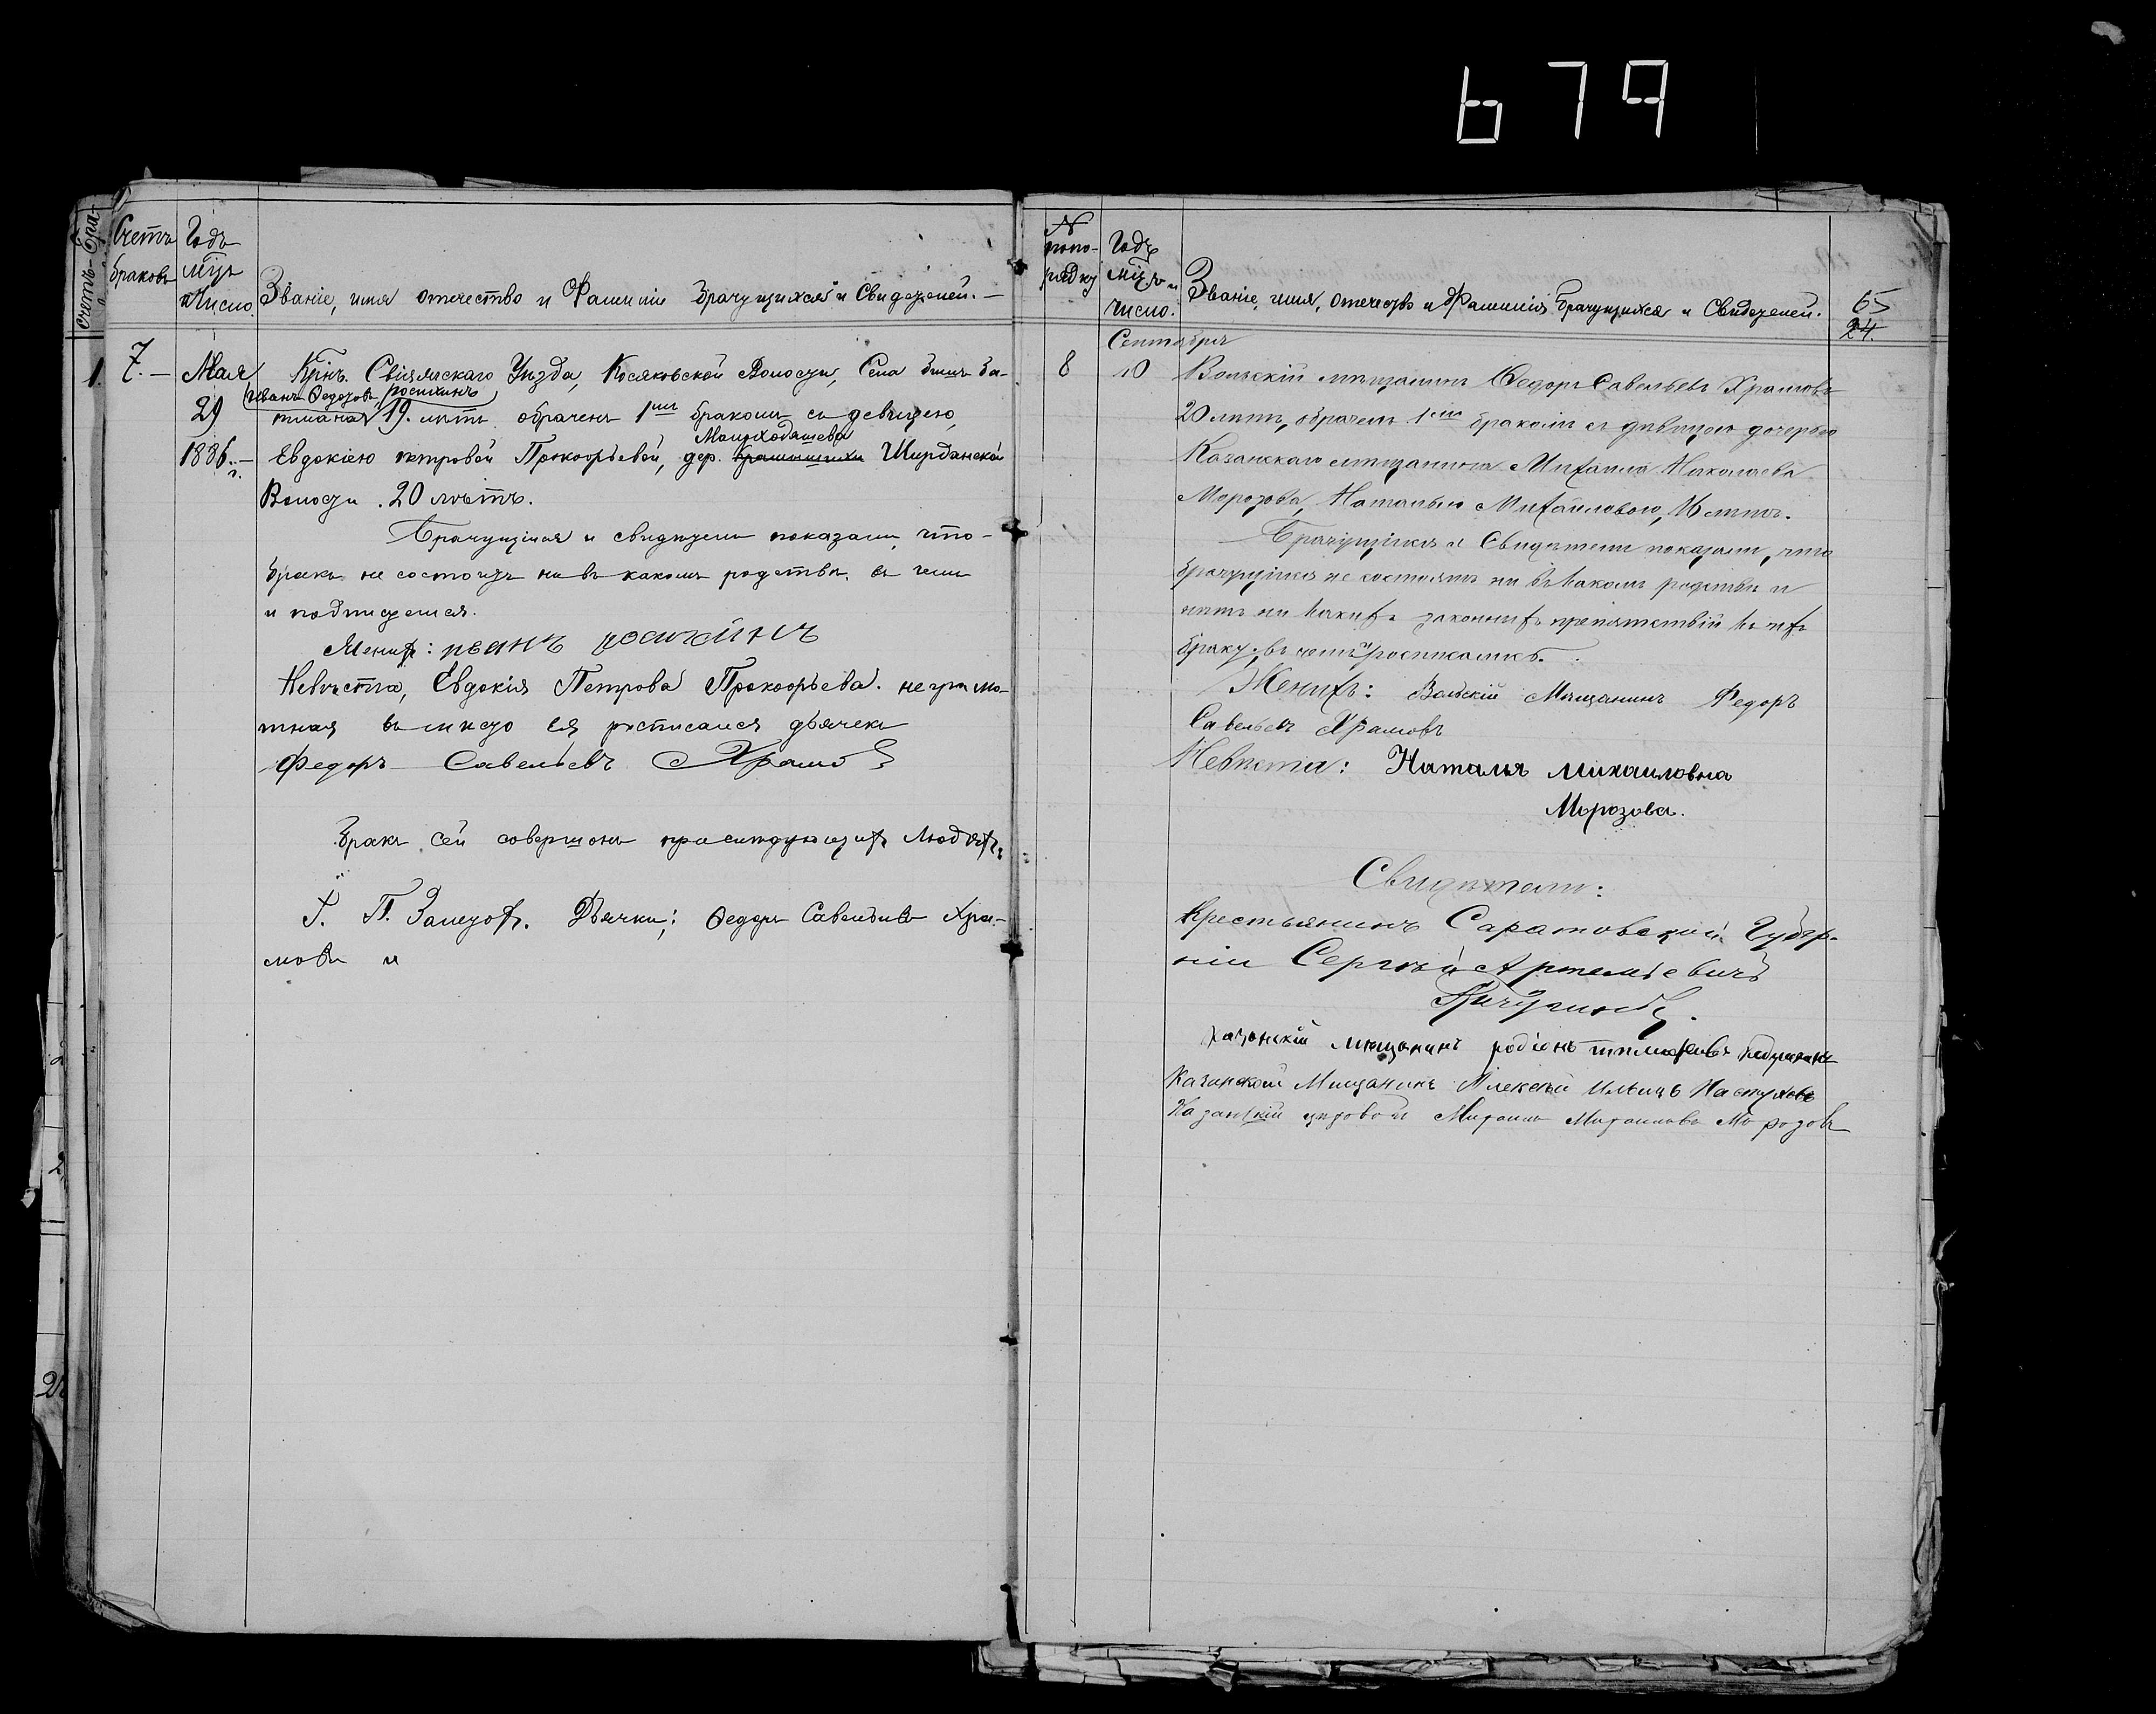 679
Счетъ бра-
Счетъ
браковъ
Годъ
мцъ
и Число.
Званіе, имя отечество и Фамиліи Брачущихся и Свидетелей. —
1.
7. —
Мая
29
1886 г. —
Крнъ. Свіяжскаго Уѣзда, Косяковской Волости, Села Бишъ Ба-
Иванъ Федоровъ Росихинъ
тмана 19. лѣтъ обраченъ 1мъ бракомъ съ девицею,
Малыхъ
Евдокіею петровой Прокофьевой, дер. Ширданской
Волости. 20 лѣтъ.
Брачущіися и свидѣтели показали, что-
бракъ не состоитъ ни въ какомъ родствѣ. въ чемъ
и подпишемся.
Женихъ: иванъ росихинъ
Невѣста, Евдокія Петрова Прокофьева. неграмо-
тная въ мѣсто ея росписался дьячекъ
Федоръ Савельевъ Храмовъ
Бракъ сей совершонъ при слѣдующихъ людяхъ:
Г. П. Дьячки; Федоръ Савельивъ Хра-
мовъ и
№
попо-
рядку
Годъ
мцъ и
число.
Званіе, имя, отечество и Фамилія Брачущихся и Свидетелей.
65
24.
Сентября
8
10
Вольскій мѣщанинъ Федоръ Савельевъ Храмовъ
20 лѣтъ, обраченъ 1мъ бракомъ съ дѣвицею дочерью
Казанскаго мѣщанина Михаила Николаева
Морозова, Натальею Михайловою, 16 лѣтъ.
Брачущіися и Свидѣтели показали, что
брачущіися не состоятъ ни въ какомъ родствѣ и
нѣтъ ни какихъ законныхъ препятствій къ ихъ
браку, въ чемъ и росписались.
Женихъ: Вольскій Мѣщанинъ Федоръ
Савельевъ Храмовъ
Невѣста: Наталья михаиловна
Морозова.
Свидѣтели:
Крестьянинъ Саратовской Губер-
ніи Сергѣй Артемьевичъ
Казанскій мѣщанинъ родіонъ
Казанской Мѣщанинъ Алексѣй Ильичъ Пастуховъ
Казанскій цеховой Михаилъ Михаиловъ Морозовъ